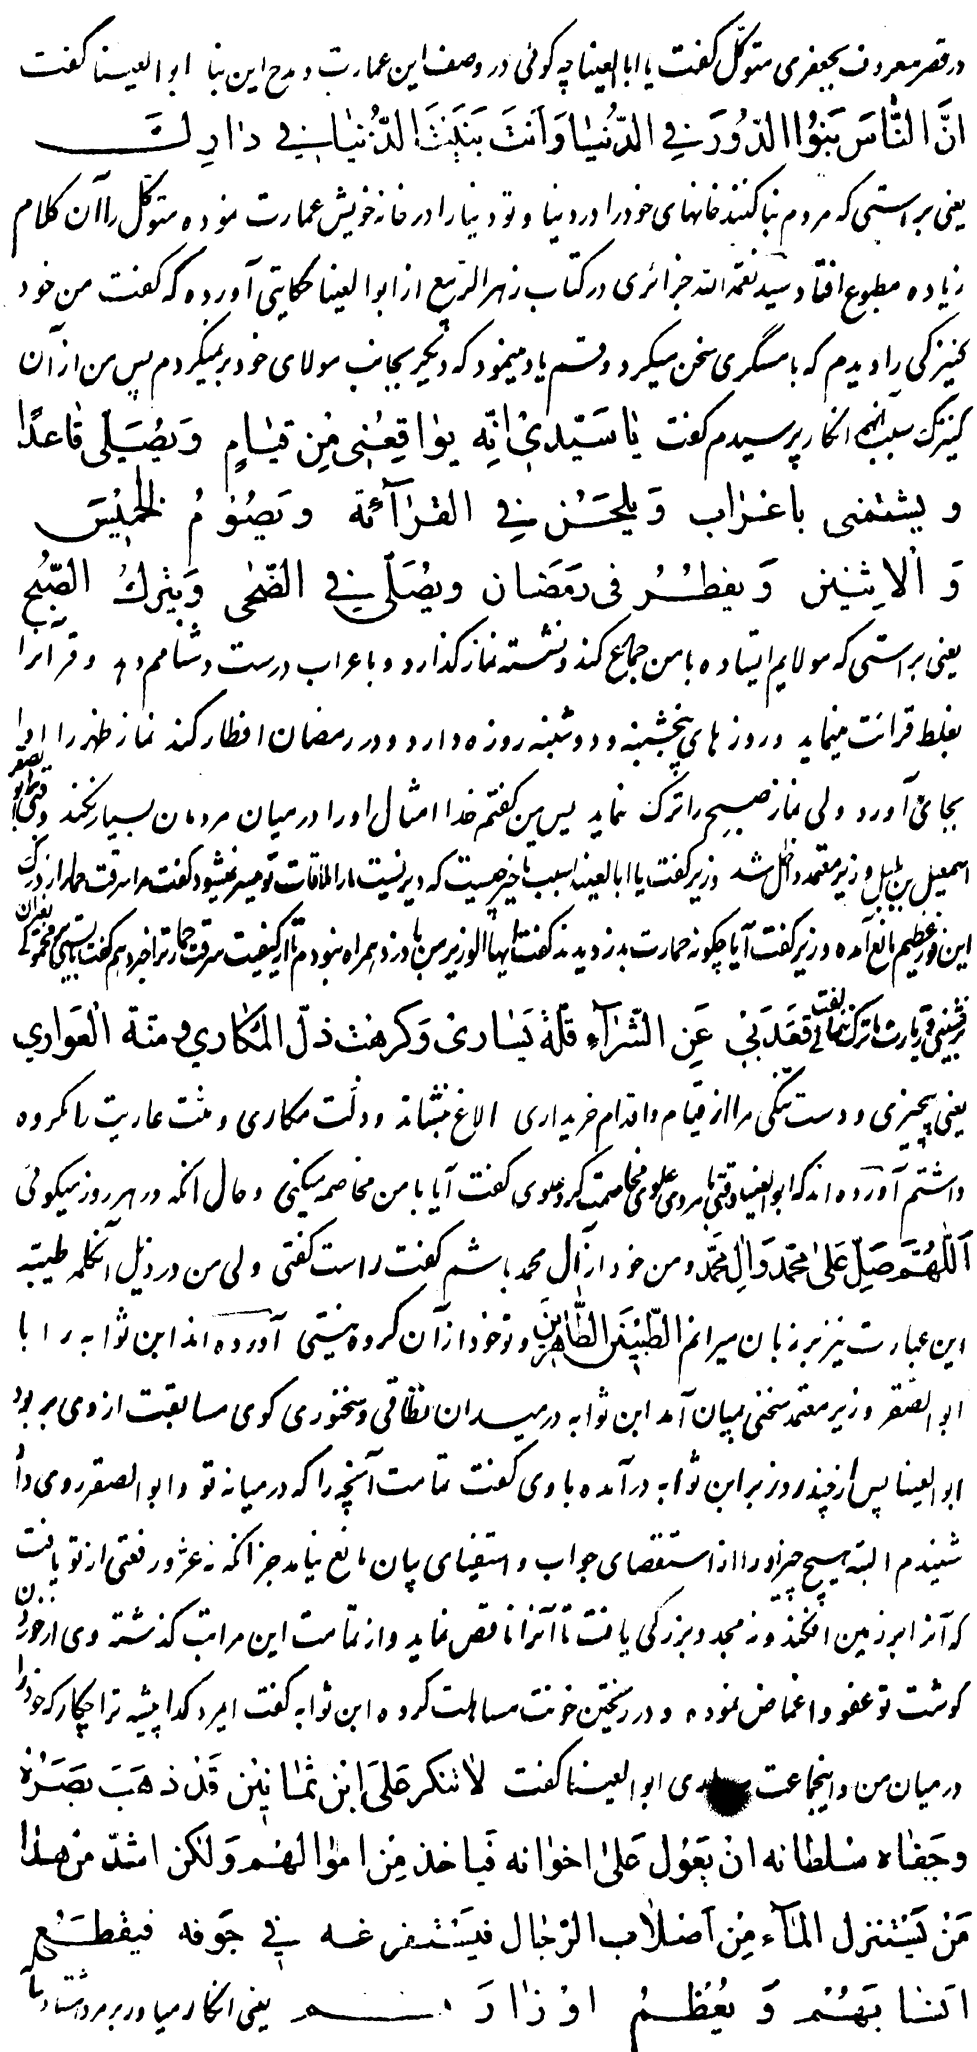 در قصر معروف بجعفری متوکّل کفت یا ابا العینا چه کوئی در وصف این عمارت و مدح این بنا ابو العیسنا کفت
انَّ النّٰاسَ بَنَوُا الدّوُرَ فِی الدّنُیٰا وَاَنتَ بَنَیتَ الدّنُیٰا فِی دٰارِكَ
یعنی براستی که مردم بنا کنند خانهای خود را در دنیا و تو دنیا را در خانه خویش عمارت نموده متوکّل را آن کلام
زیاده مطبوع افتاد سید نعمة الله جزائری در کتاب زهر الربیع از ابو العینا حکایتی آورده که کفت من خود
کنیزکی را دیدم که با مسکری سخن میکرد و قسم یاد مینمود که دیکر بجانب مولای خود برنمیکردم پس من از آن
کنیزک سبب آنهمه انکار پرسیدم کفت یٰا سَیّدیٖ انِّه یوٰاقِعُنیٖ مِن قیٰامٍ وَیصُلّی قٰاعدًا
و یشتمنی باعرٰاب وَ یلحَن فِی القرٰآئة و یَصُوُمُ الخمیٖسَ
وَ الْاِثنینَ وَ یفطُرُ فی رَمَضٰان ویصُلّی فِی الضّحٰی وَیترك الصّبُح
یعنی براستی که مولایم ایستاده با من جماع کند و نشسته نماز کذارد و با عراب درست دشنامم دهد و قرآنرا
بغلط قرائت مینماید و روزهای پنجشنبه و دوشنبه روزه دارد و در رمضان افطار کند نماز ظهر را ادا
بجای آورد ولی نماز صبح را ترک نماید پس من کفتم خدا امثال او را در میان مردمان بسیار نکند وقتی بر ابو الصقر
اسمعیل بن بلبل وزیر معتمد داخل شد وزیر کفت یا ابا العینا سبب تاخیر چیست که دیر نیست ما را ملاقات تو میسر نمیشود کفت مرا سرقت حمار از درک
این فوز عظیم مانع آمده وزیر کفت آیا چکونه حمارت بدزدیدند کفت ایها الوزیر من با دزد همراه نبودم تا از کیفیت سرقت حمار ترا خبر دهم کفت بایستی بر حمار دیکران
بر نشینی و زیارت ما ترک ننمائی کفت قعَدَ بیٖ عَنِ الشّرٰآءِ قلّة یَسٰاریٖ وَ کرهت ذلّ المکٰاری و منّة العَواری
یعنی بیچیزی و دست تنکی مرا از قیام و اقدام خریداری الاغ بنشاند و ذلّت مکاری و منّت عاریت را مکروه
داشتم آورده اند که ابو العینا وقتی با مردی علوی مخاصمت کرد علوی کفت آیا با من مخاصمه میکنی و حال انکه در هر روز میکوئی
اَللّٰهُمَّ صَلِّ عَلیٰ محمَّد وَ اٰلِ محمَّد و من خود از آل محمد باشم کفت راست کفتی ولی من در ذیل آنکلمه طیبّه
این عبارت نیز بر زبان میرانم الطّیّبینَ الطّٰاهِرینَ و تو خود از آن کروه نیستی آورده اند ابن ثوابه را با
ابو الصقر وزیر معتمد سخنی بمیان آمد ابن ثوابه در میدان نطّاقی و سخنوری کوی مسابقت از وی بربود
ابو العینا پس از چند روز بر ابن ثوابه درآمده با وی کفت تمامت آنچه را که در میانه تو و ابو الصقر روی داد
شنیدم البته هیچ چیز او را از استقصای جواب و استیفای بیان مانع نیامد جز انکه نه عزّ و رفعتی از تو یافت
که آنرا بر زمین افکند و نه مجد و بزرکی یافت تا آنرا ناقص نماید و از تمامت این مراتب کذشته وی از خوردن
کوشت تو عفو و اغماض نموده و در ریختن خونت مساهلت کرده ابن ثوابه کفت ایمرد کدا پیشه ترا چکار که خود را
در میان من و اینجماعت ابو العینا کفت لاٰ تنکر عَلیَ ابْن ثمٰانیٖن قَد ذهَبَ بَصَرُهٗ
و جَفٰاه سُلطٰانه انْ یعَوُل عَلیٰ اخوٰانه فیَاخذ مِن اموٰالهُم وَ لٰکن اشدّ من هٰذا
مَنْ یَستنزل المٰآء مِن اَصلاٰب الرّجٰال فیَسْتفرغه فی جَوفه فیقطعُ
اَنسٰابَهُمْ وَ یعُظمُ اوْزٰارَهُم یعنی انکار میاور بر مرد هشتاد ساله